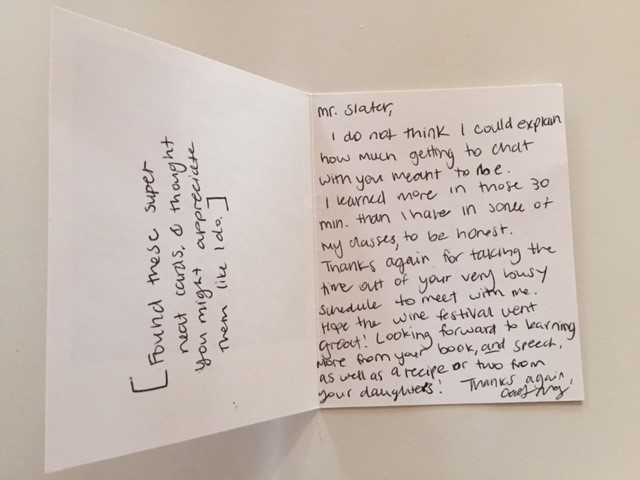 [Found these super
neat cards, & thought
you might appreciate
them like I do.]
Mr. Slater,
I do not think I could explain
how much getting to chat
with you meant to me.
I learned more in those 30
min. than I have in some of
my classes, to be honest.
Thanks again for taking the
time out of your very busy
schedule to meet with me.
Hope the wine festival went
great! Looking forward to learning
more from your book, and speech,
as well as a recipe or two from
your daughters! Thanks again,